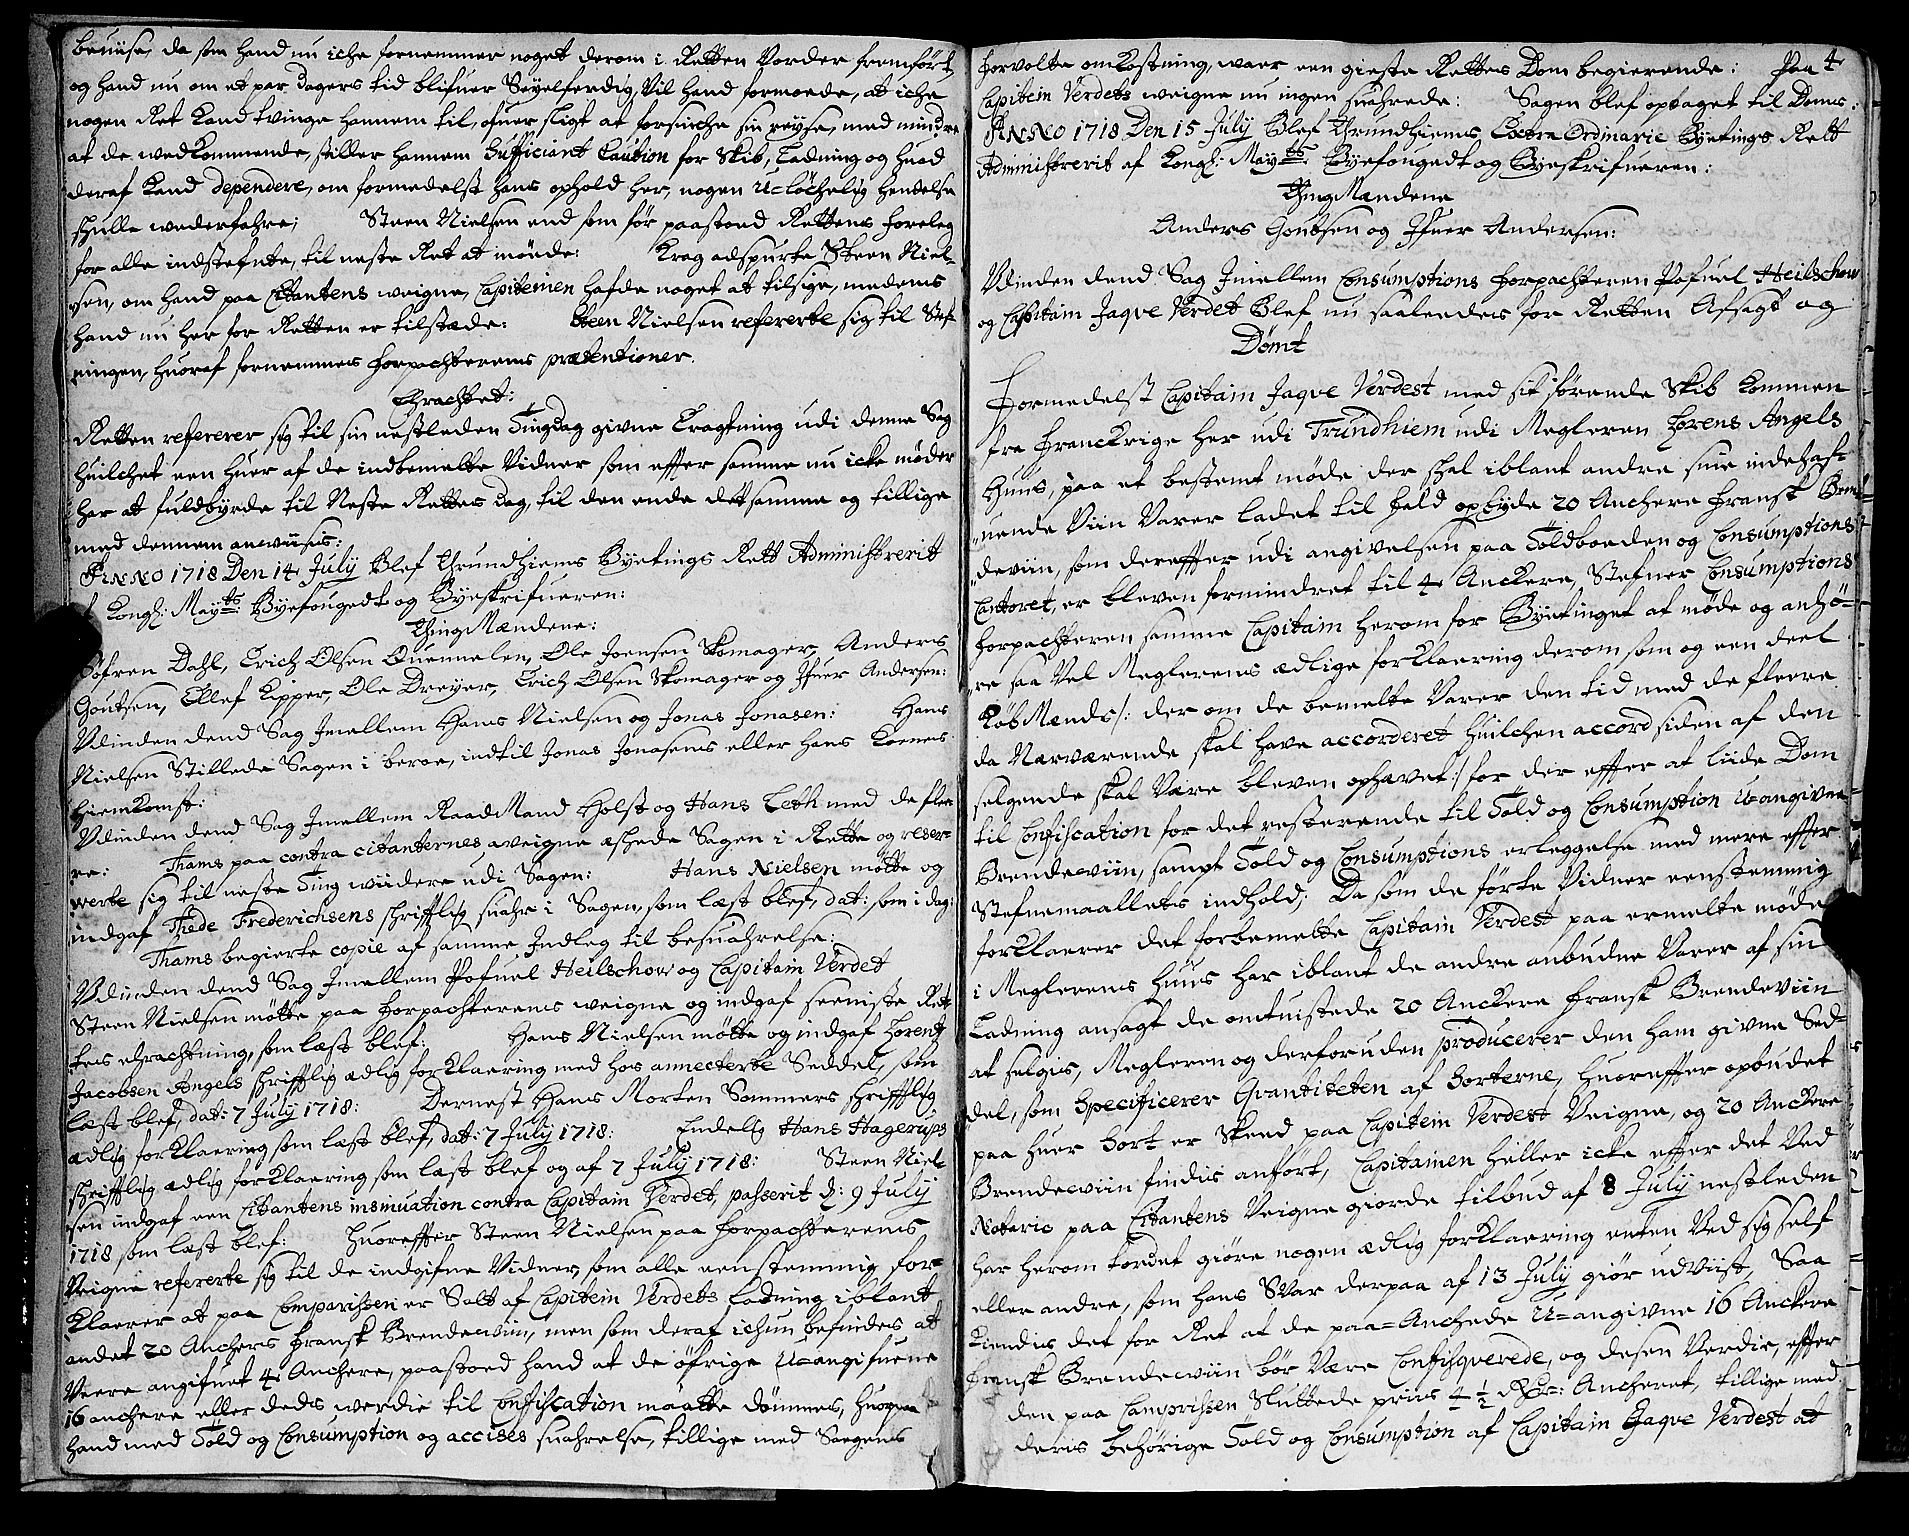 beviise, da som hand nu iche fornemmer noget derom i Retten Vorder fremført
og hand nu om et par Dagers tid blifuer Seyelferdig, Vil hand formoede, at iche
nogen Ret Kand tvinge hannem til, ofuer sligt at forsinche sin reyse, med mindre
at de wedkommende, stiller hannem Sufficiant Caution for Skib, Ladning og huad
deraf Kand dependere, om formedelst hans ophold her, nogen U-løchelig hendelse
skulle wederfahre; Steen Nielsen end som før paastoed Rettens foreleg
for alle indstefnte, til neste Ret at møede: Krog adspurte Steen Niel-
sen, om hand paa Citantens weigne, Capiteinen hafde noget at tilsige, medens
hand nu her for Retten er tilstæde: Steen Nielsen refererte sig til Stef-
ningen, huoraf fornemmes forpachterens prætentioner.
Eragtet:
Retten refererer sig til sin nestleden Tingdag givne Eragtning udi denne Sag
huilchet een huer af de indbemelte Vidner som effter samme nu icke møder
har at fuldbyrde til Neste Rettes dag, til den ende det samme og tillige
med dennem anwiises:
ANNO 1718 Den 14 July Blef Thrundhiems Byetings Rett Administrerit
af Kongl: May:ts Byefougedt og Byeskrifueren:
Ting Mændene:
Søfren Dahl, Erich Olsen Quennelen, Ole Joensen Skomager, Anders
Goutsen, Ellef Kipper, Ole Dreyer, Erich Olsen Skomager og Ifuer Andersen:
Udinden dend Sag Imellem Hans Nielsen og Jonas Jonasen: Hans
Nielsen Stillede Sagen i beroe, indtil Jonas Jonasens eller hans Kones
hiemkomst:
Udinden dend Sag Imellem Raad Mand Holst og Hans Leth med de flee-
re: Thams paa contra citanternes weigne æshede Sagen i Rette og reser-
verte sig til neste Ting wiidere udi Sagen: Hans Nielsen møtte og
indgaf Thede Frederichsens skrifftlig suahr i Sagen, som læst blef, dat: som i dag:
Thams begierte copie af samme Indleg til besuahrelse:
Udinden dend Sag Imellem Pofuel Heilschow og Capitain Verdet
Steen Nielsen møtte paa forpachterens weigne og indgaf seeniste Ret-
tes eragtning, som læst blef: Hans Nielsen møtte og indgaf Lorentz
Jacobsen Angels skrifftlig ædlig forklaering med hos annecterte Seddel, som
læst blef, dat: 7 July 1718: Dernest Hans Morten Sommers skrifftlig
ædlig forklaering som læst blef, dat: 7 July 1718: Endelig Hans Hagerups
skrifftlig ædlig forklaering som læst blef og af 7 July 1718: Steen Niel-
sen indgaf een Citantens insinuation contra Capitain Verdet, passerit d: 9 July
1718 som læst blef: Huoreffter Steen Nielsen paa forpachterens
Veigne refererte sig til de indgifne Vidner, som alle eenstemmig for-
klaerer at paa Comparissen er Salt af Capitein Verdets Ladning iblant
andet 20 Anchers fransk Brendewiin, men som deraf ichun befindes at
Veere angifuet 4 Anchere, paastoed hand at de øfrige U-angifuene
16 anchere eller deds werdie til Confiscation maatte dømmes, huorpaa
hand med Told og Consumption og accises suahrelse, tillige med Saegens
forvolte omkostning, waer een gieste Rettes Dom begierende: Paa 4
Capitein Verdets weigne nu ingen suahrede: Sagen blef optaget til Doms:
ANNO 1718 Den 15 July Blef Thrundhiems Extra Ordinarie Byetings Rett
Administrerit af Kongl: May:ts Byefougedt og Byeskrifueren:
Ting Mændene
Anders Goutsen og Ifuer Andersen:
Udinden dend Sag Imellem Consumptions forpachteren Pofuel Heilschow
og Capitain Jaqve Verdet Blef nu saaledes for Retten Afsagt og
Dømt
Formedelst Capitain Jaqve Verdest med sit førende Skib Kommen
fra Franckrige her udi Trundhiem udi Megleren Lorens Angels
huus, paa et bestemt møde der skal iblant andre sine indehaf-
uende Viin Varer ladet til fald opbyde 20 Anchere fransk Bren-
deviin, som dereffter udi angivelsen paa Toldboeden og Consumptions
Cantoret, er bleven formindret til 4 Anckere, Stefner Consumptions
forpachteren samme Capitain herom for Byetinget at møde og anhø-
re saa Vel Meglerens ædlige forklaering derom som og een deel
KøbMænds /: der om de bemelte Varer den tid med de fleere
da Nærværende skal have accorderet huilchen accord siden af den
selgende skal Være bleven ophævet :/ for der effter at liide Dom
til Confiscation for det resterende til Told og Consumption Uangivne
Brendewiin, sampt Told og Consumptions erleggelse med mere effter
Stefnemaallets indhold; Da som de førte Vidner eenstemmig
forklaerer det forbemelte Capitain Verdest paa ermelte møde
i Meglerens huus har iblant de andre anbudne Varer af sin
Ladning ansagt de omtuistede 20 Anckere fransk Brendeviin
at selgis, Megleren og derforuden producerer den ham givne Sed-
del, som Specificerer Qvantiteten af Sorterne, huoreffter opbudet
paa huer Sort er Skeed paa Capitein Verdest Veigne, og 20 Anckere
Brendewiin findis anført, Capitainen heller icke effter det Ved
Notario paa Citantens Veigne giorde tilbud af 8 July nestleden
har herom tordet giøre nogen ædlig forklaering enten Ved sig self
eller andre, som hans Svar derpaa af 13 July giør udviist, Saa
Kiendis det for Ret at de paa-Anchede U-angivne 16 Anckere
fransk Brendewiin bør Være Confisqverede, og desen Verdie, effter
den paa Comprissen Sluttede priis 4 1/2 Rdr: Ancheret, tillige med
deris behørige Told og Consumption af Capitain Jaqve Verdest at